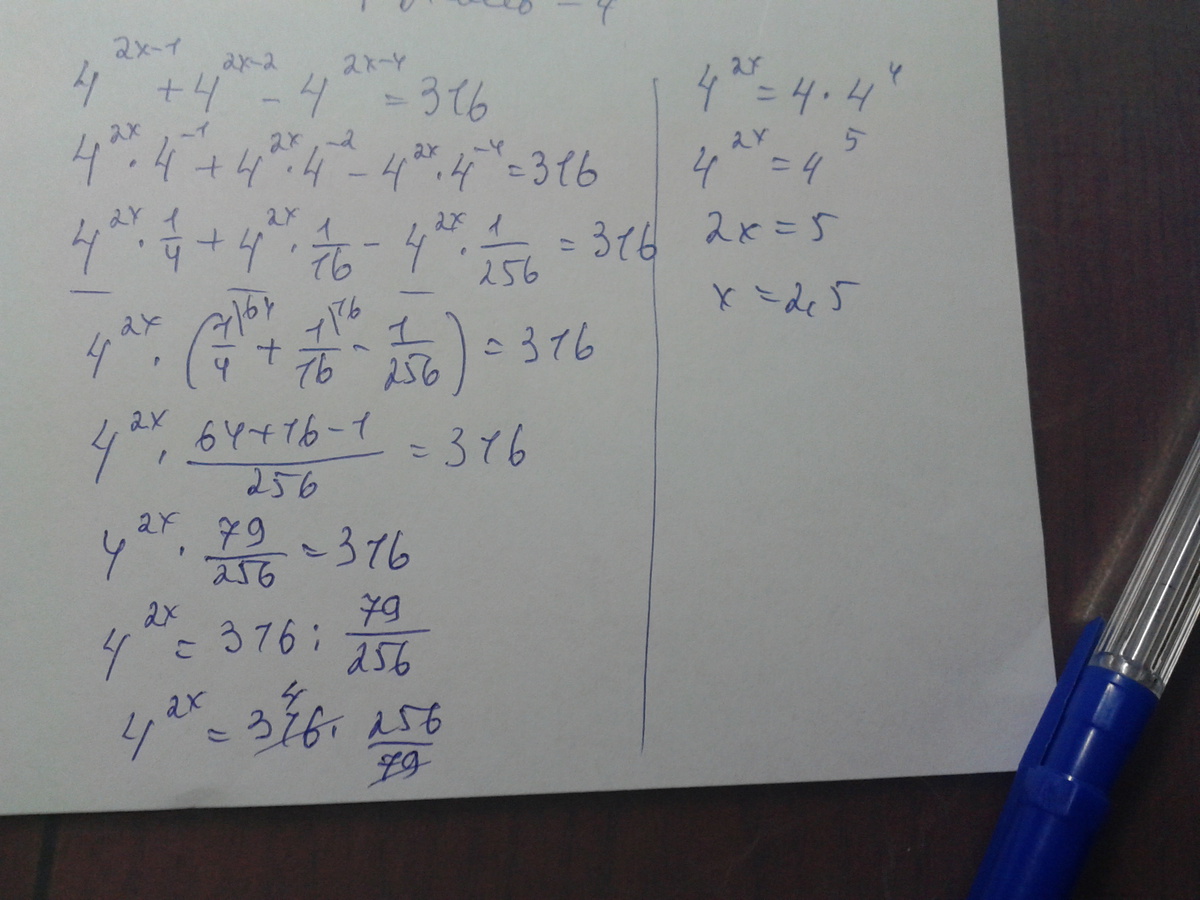 4^{2x-1} + 4^{2x-2} - 4^{2x-4} = 316
4^{2x} · 4^{-1} + 4^{2x} · 4^{-2} - 4^{2x} · 4^{-4} = 316
4^{2x} · 1/4 + 4^{2x} · 1/16 - 4^{2x} · 1/256 = 316
4^{2x} · (1/4 |64 + 1/16 |16 - 1/256) = 316
4^{2x} · (64+16-1)/256 = 316
4^{2x} · 79/256 = 316
4^{2x} = 316 : 79/256
4^{2x} = 316 4 · 256/79
4^{2x} = 4 · 4^4
4^{2x} = 4^5
2x = 5
x = 2,5